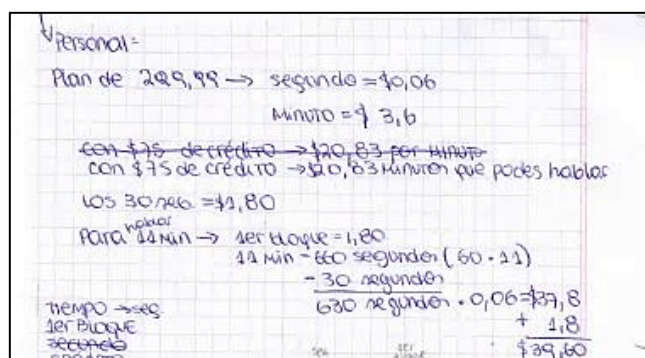 Personal=
Plan de 299,99 → segundo = $0,06
Minuto = $ 3,6
con $75 de crédito → $20,83 por minuto
con $75 de crédito → $20,83 Minutos que podes hablar
Los 30 seg = $1,80
Para hablar 11 Min → 1er bloque = 1,80
11 Min - 660 segundos (60 · 11)
- 30 segundos
630 segundos · 0,06 = $37,8
+ 1,8
$39,60
TIEMPO → seg
1er BLOQUE
segundo